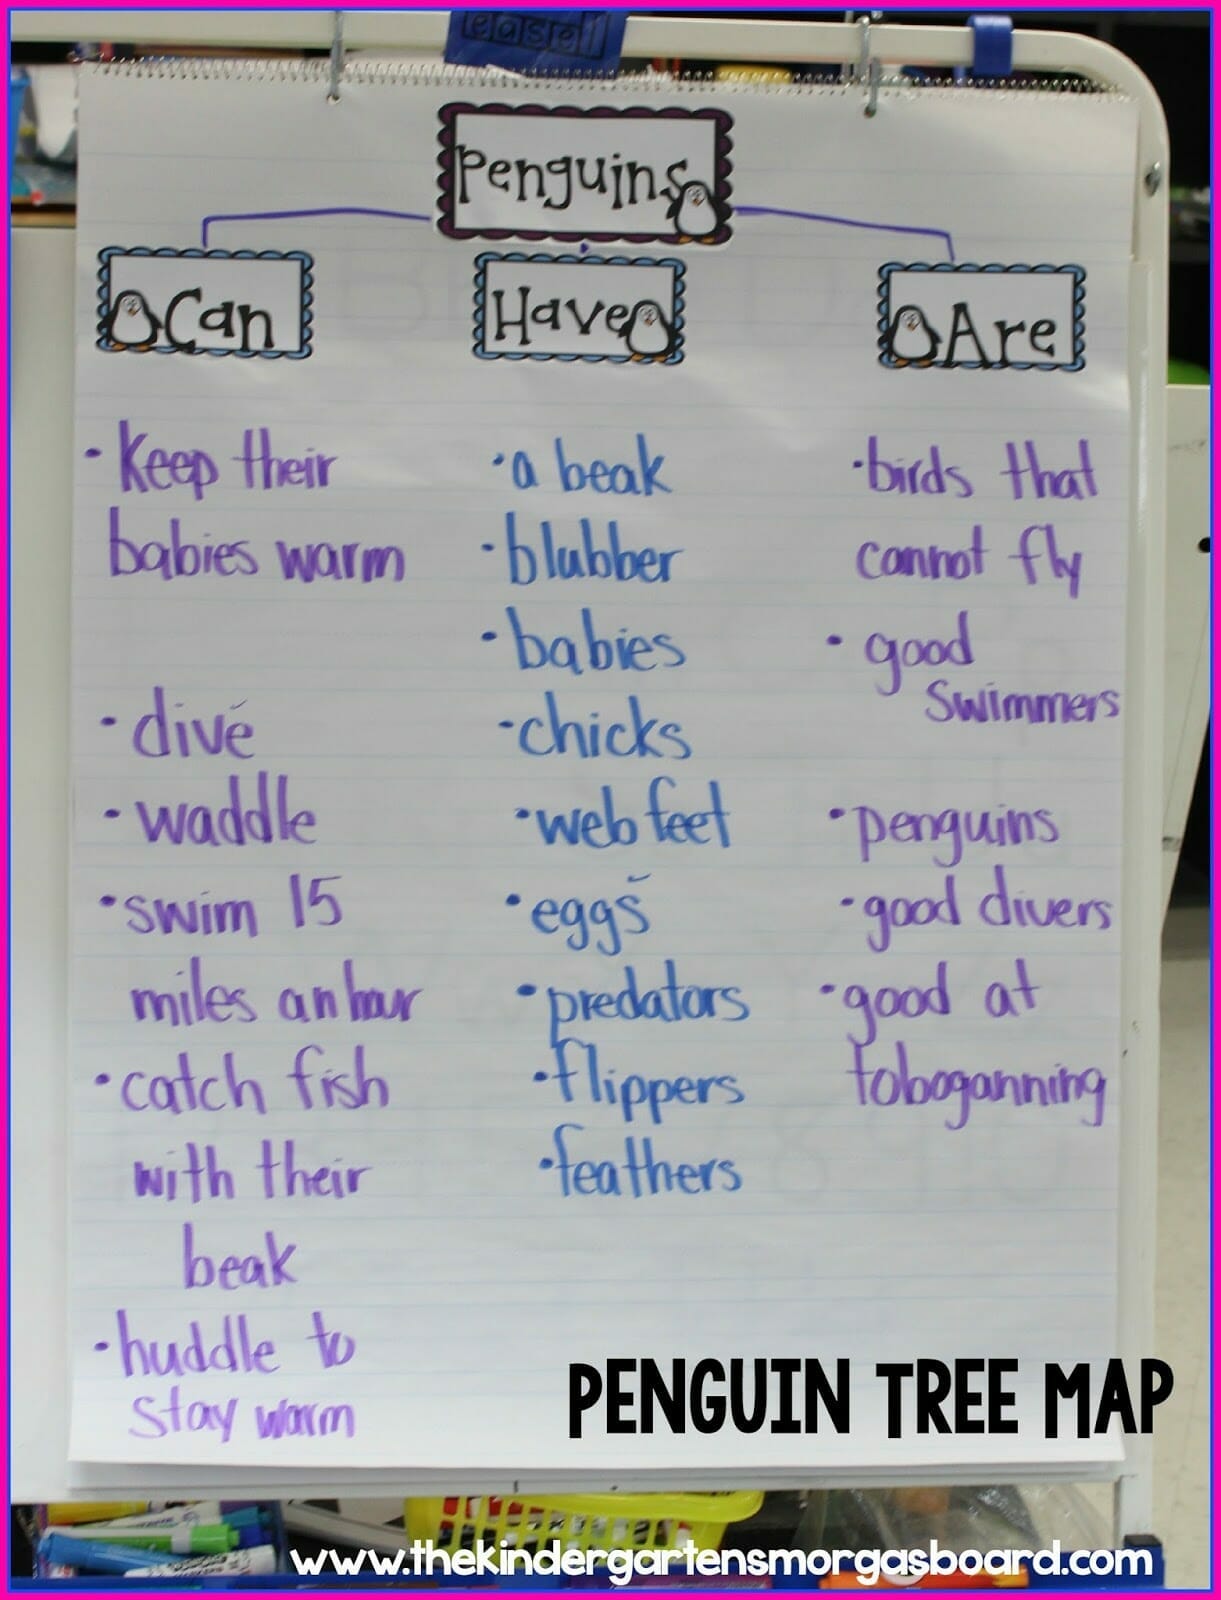 easel
Penguins
Can
Have
Are
• Keep their
babies warm
• dive
• waddle
• swim 15
miles an hour
• catch fish
with their
beak
• huddle to
stay warm
• a beak
• blubber
• babies
• chicks
• web feet
• eggs
• predators
• flippers
• feathers
• birds that
cannot fly
• good
swimmers
• penguins
• good divers
• good at
toboganning
PENGUIN TREE MAP
www.thekindergartensmorgasboard.com